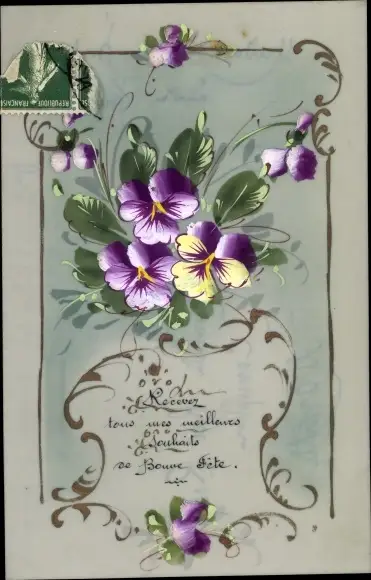 RÉPUBLIQUE FRANÇAISE
Recevez
tous mes meilleurs
Souhaits
de Bonne Fête.